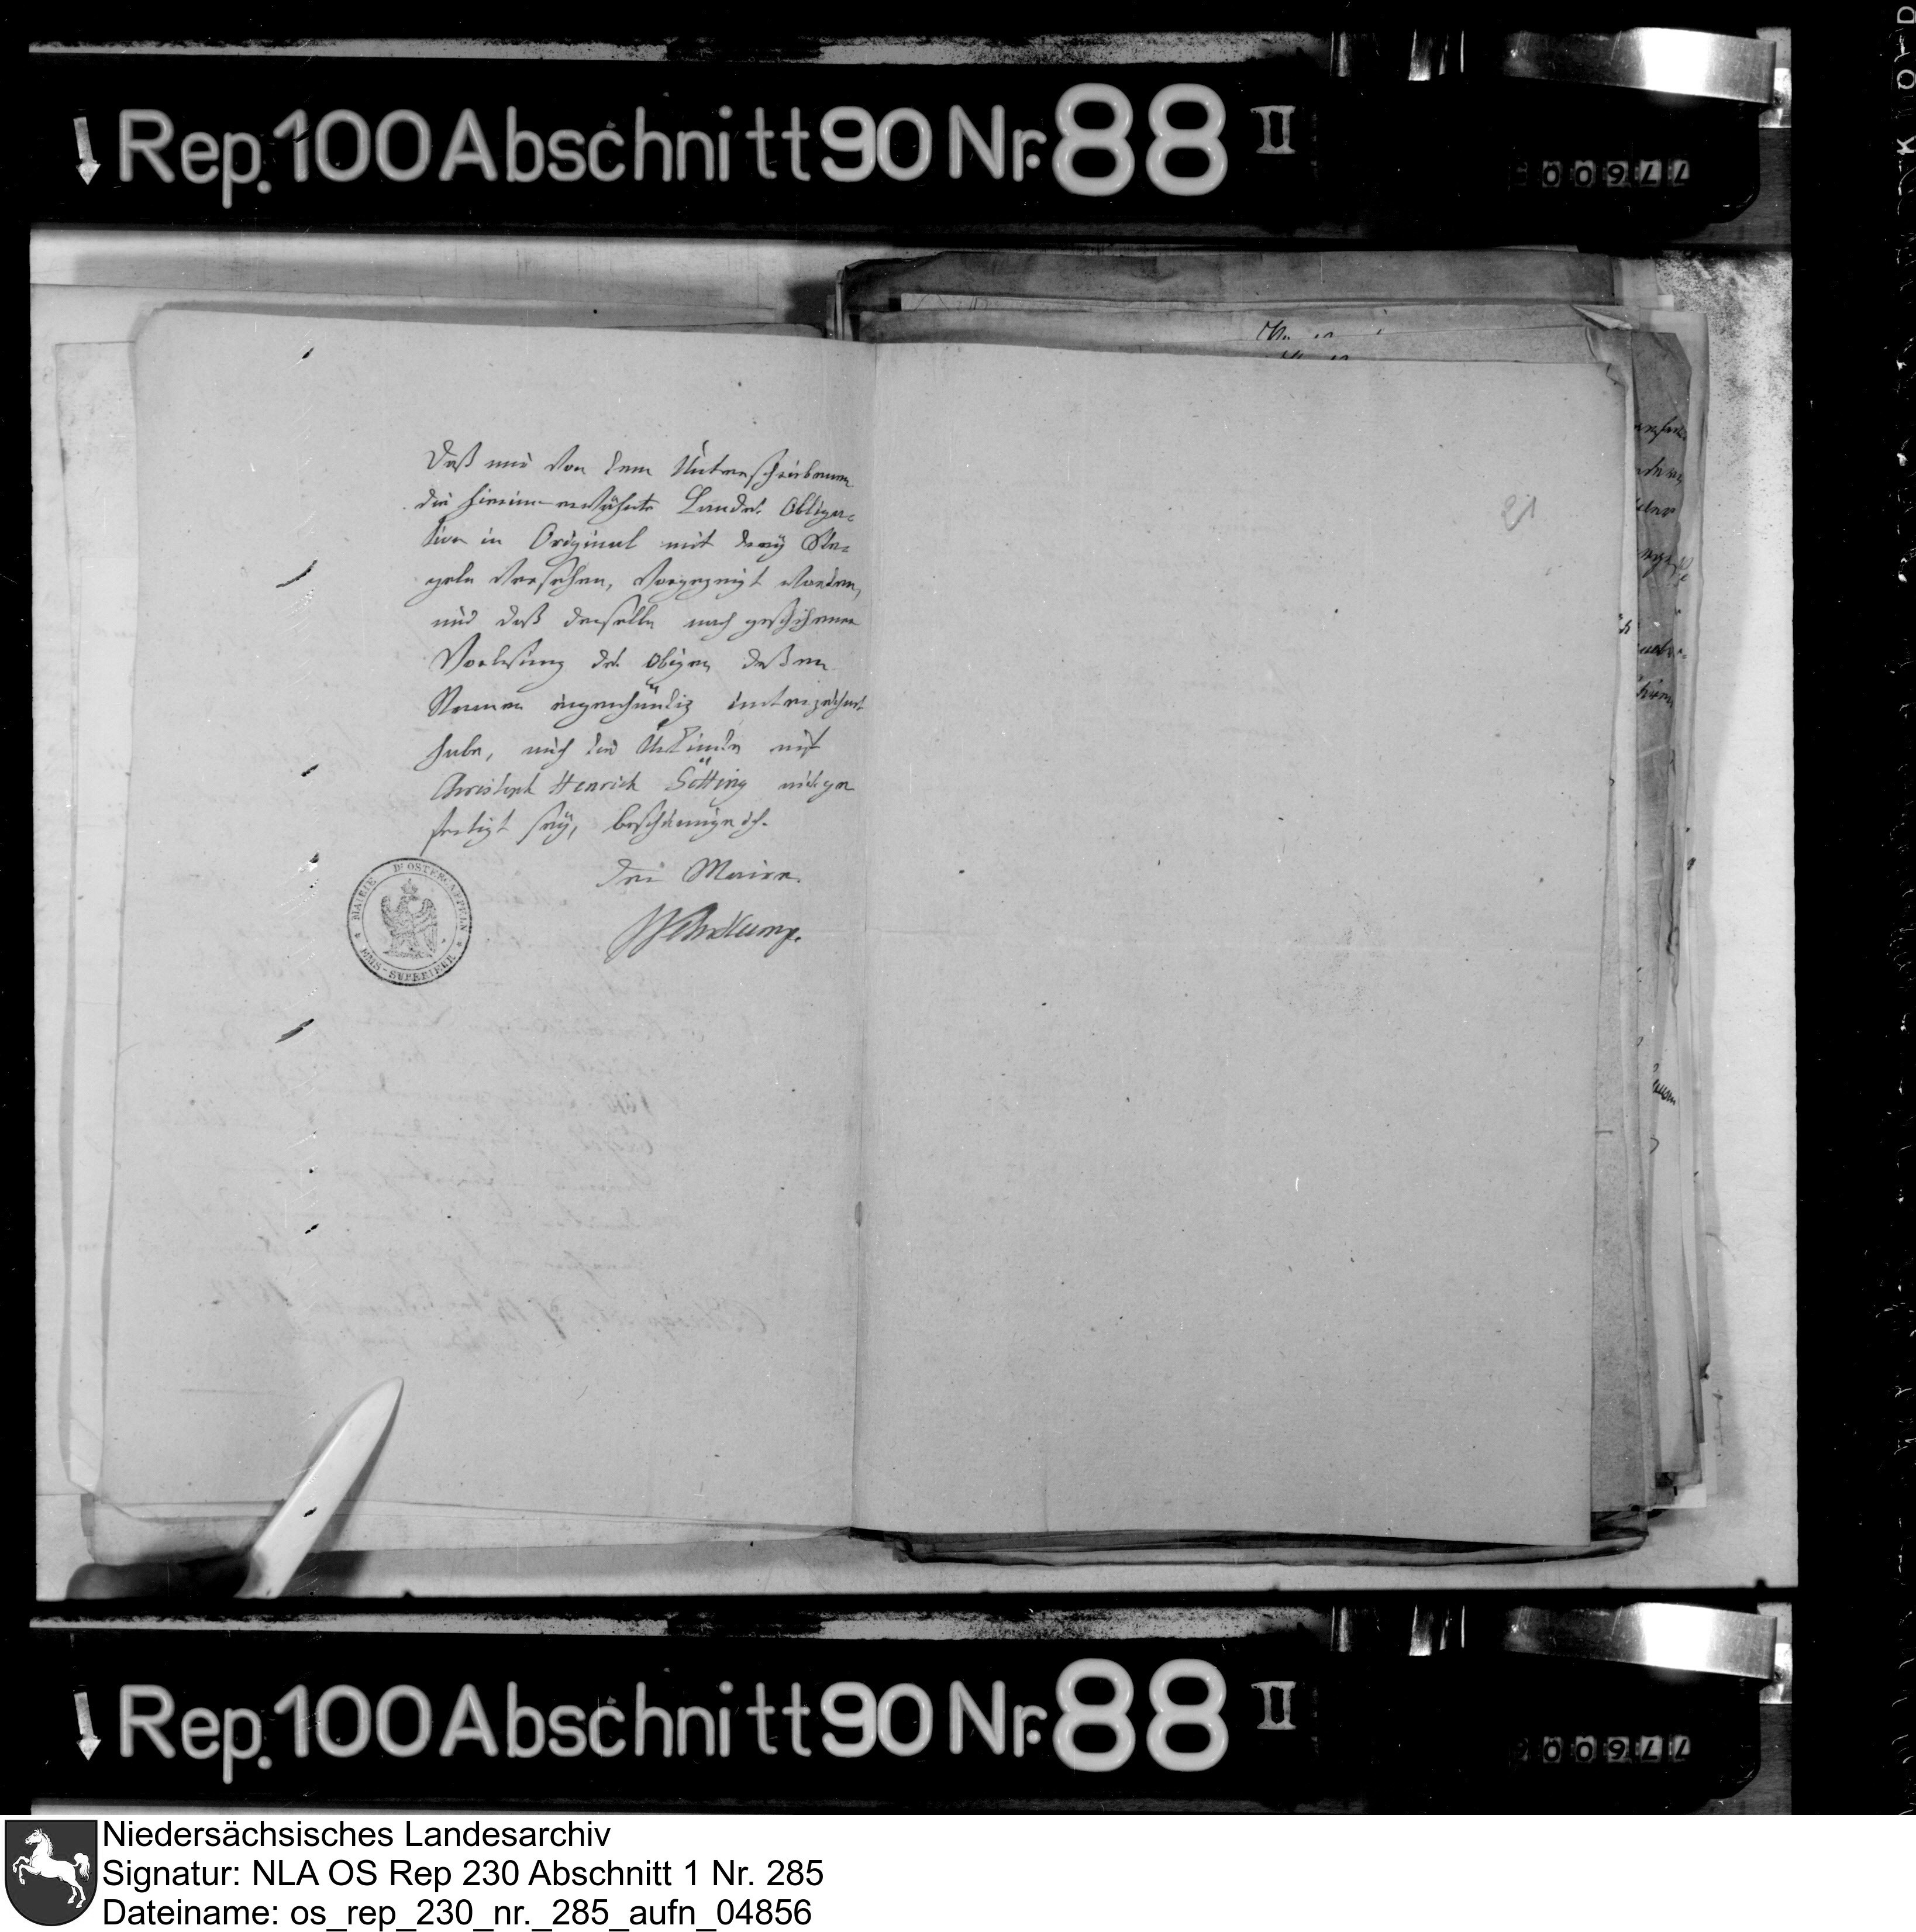 Rep. 100 Abschnitt 90 Nr. 88 II
00977
Daß mir von dem Unterschriebenen
die hierinn erwähnte Landes Obliga=
tion in Original mit drey Sie=
geln versehen, vorgezeigt worden,
und daß derselbe nach geschehener
Vorlesung des obigen deßen
Namen eigenhändig unterzeichnet
habe, auch die Urkunde
Christoph Henrich Götting
fertigt sey, bescheinige ich.
Der Maire.
MAIRIE D'OSTERCAPPELN
EMS-SUPERIEUR
21
Rep. 100 Abschnitt 90 Nr. 88 II
00977
Niedersächsisches Landesarchiv
Signatur: NLA OS Rep 230 Abschnitt 1 Nr. 285
Dateiname: os_rep_230_nr._285_aufn_04856